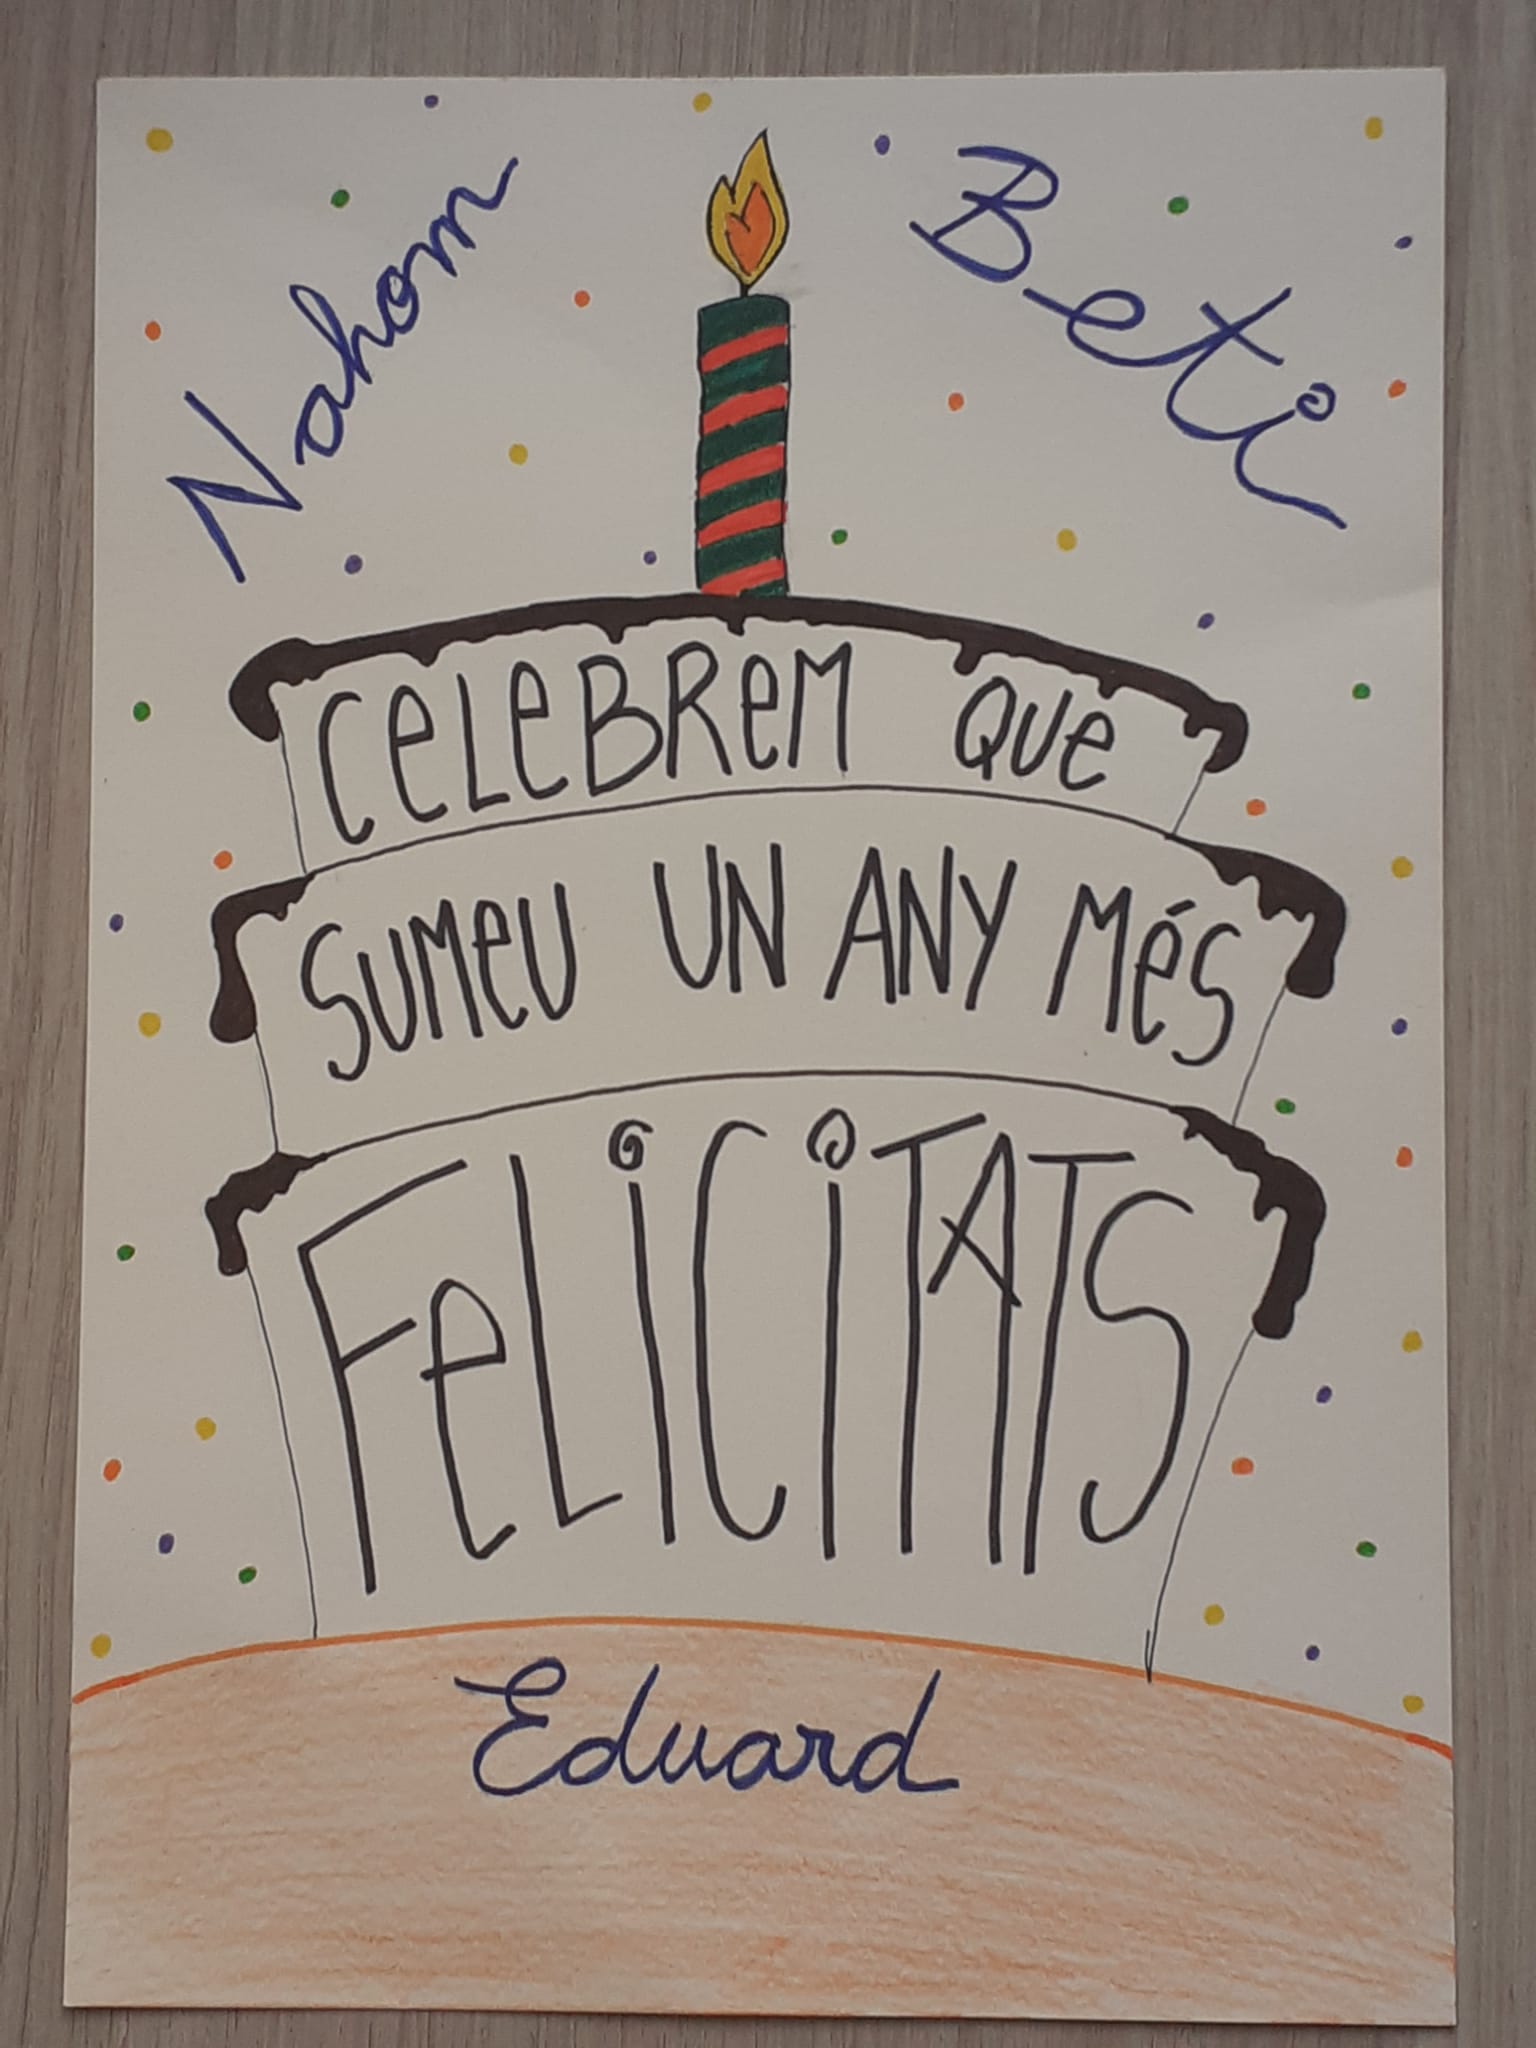 Nahom
Beti
CeLeBReM QUe
SUMeU UN ANY MéS
FeLiCiTATS
Eduard